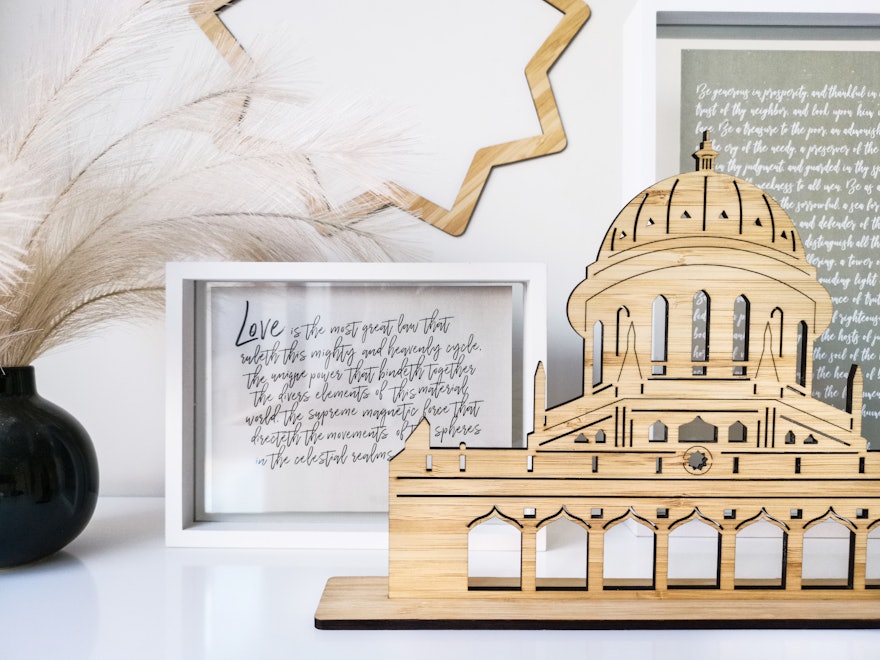 Love is the most great law that
ruleth this mighty and heavenly cycle,
the unique power that bindeth together
the divers elements of this material
world, the supreme magnetic force that
directeth the movements of the spheres
in the celestial realms
Be generous in prosperity, and thankful in
trust of thy neighbor, and look upon him
face. Be a treasure to the poor, an admonish
the cry of the needy, a preserver of the
in thy judgment, and guarded in thy sp
meekness to all men. Be as a
the sorrowful, a sea for
and defender of the
distinguish all th
ering, a tower o
iding light
ce of truth
of righteous
the hosts of j
the soul of the
the heart of